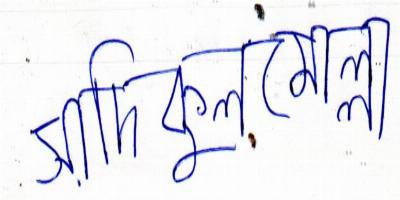 সাদিকুল মোল্লা